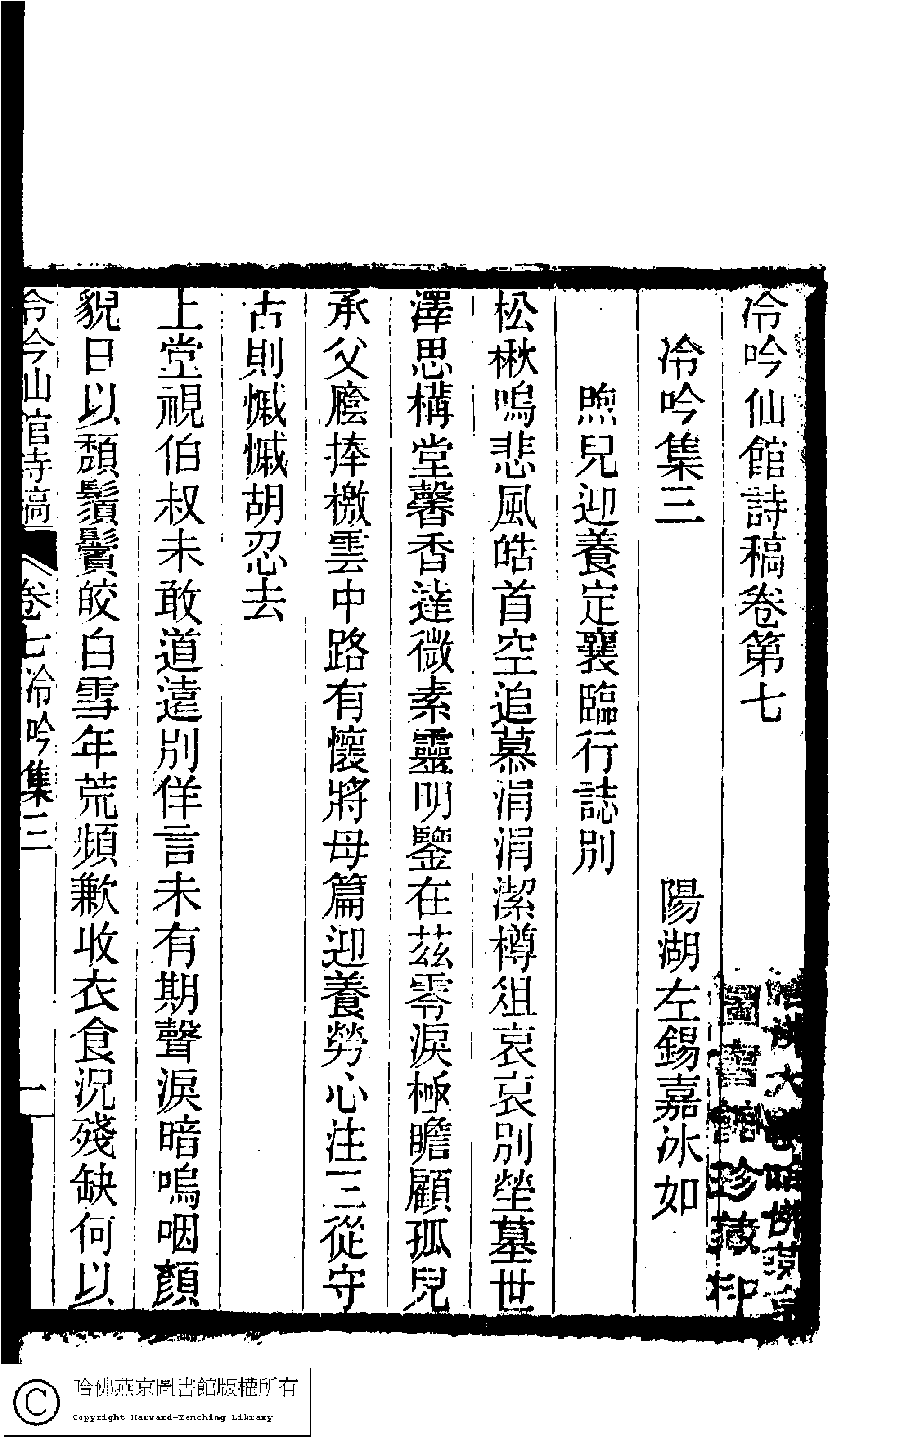 冷吟仙館詩稿卷第七
冷吟集三
陽湖左錫嘉冰如
煦兒迎養定襄臨行誌別
松楸嗚悲風皓首空追慕涓涓潔樽俎哀哀別塋墓世
澤思構堂馨香達微素靈明鑒在茲零淚極瞻顧孤兒
承父廕捧檄雲中路有懷將母篇迎養勞心注三從守
古則慽慽胡忍去
上堂視伯叔未敢道遠別佯言未有期聲淚暗嗚咽顏
貌日以頹鬚鬢皎白雪年荒頻歉收衣食況殘缺何以
冷吟仙館詩稿
卷七冷吟集三
一
圖書館珍藏印
哈佛燕京圖書館版權所有
Copyright Harvard-Yenching Library